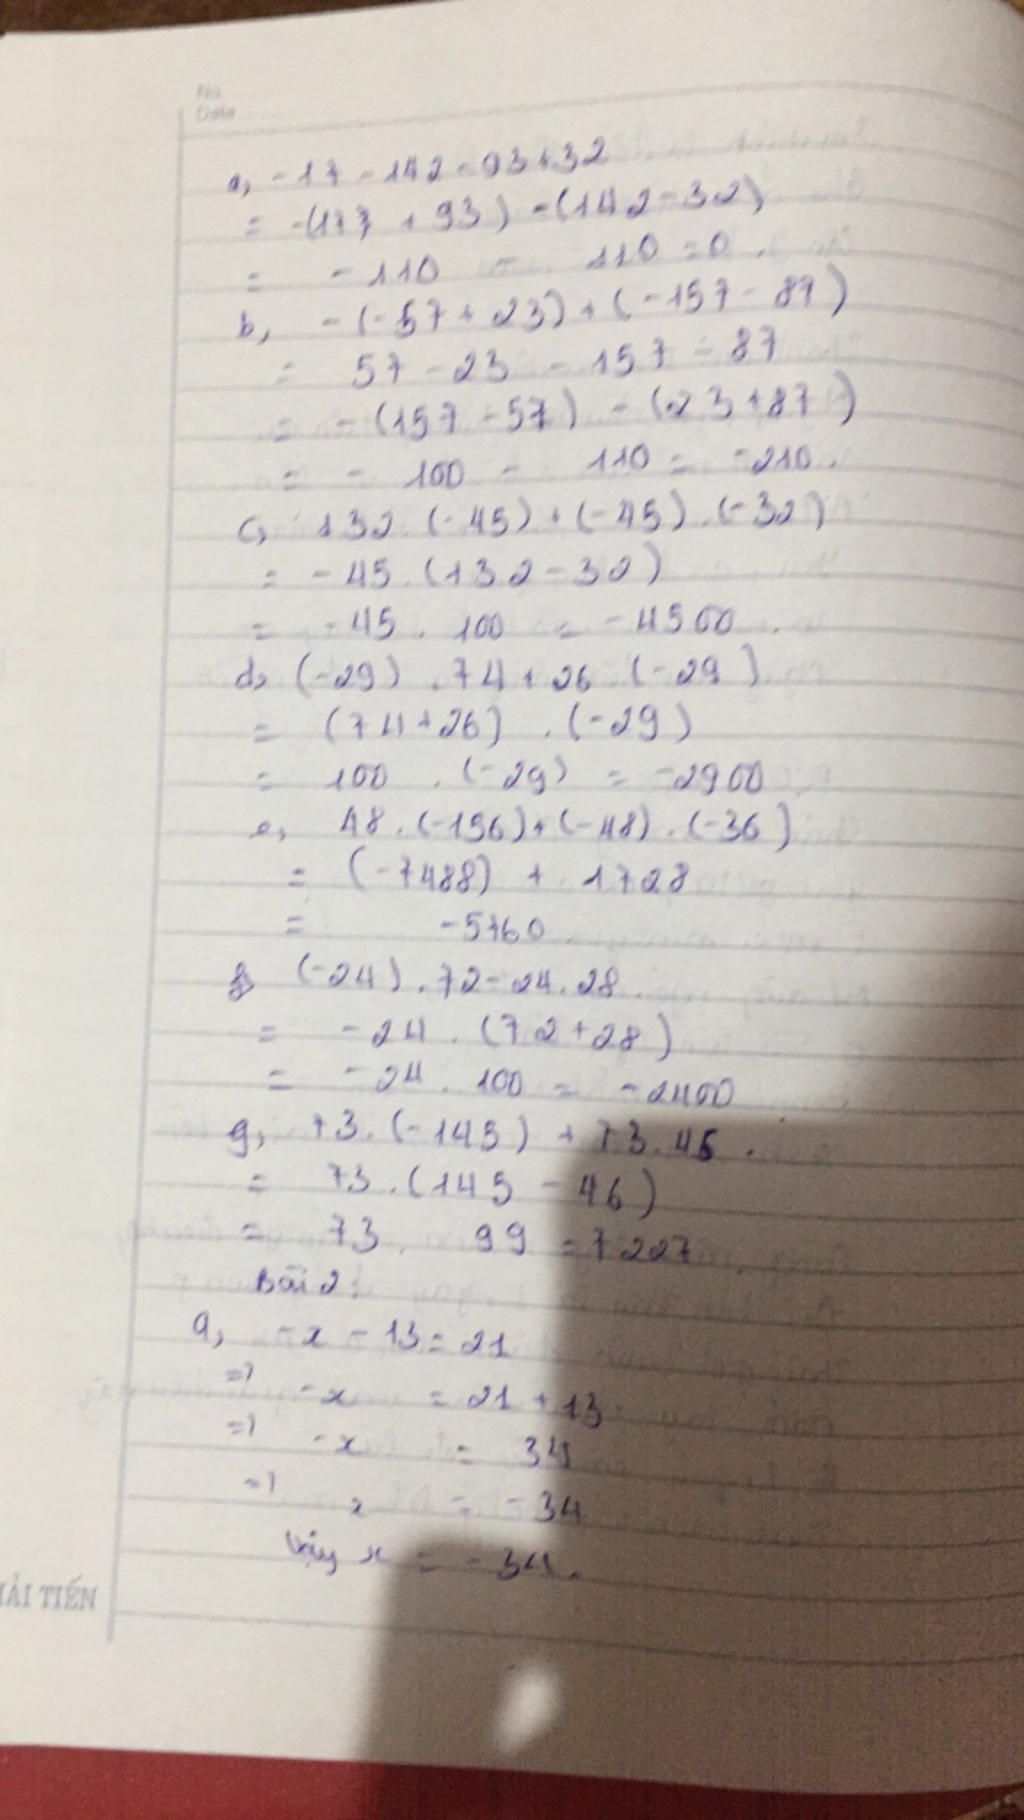 No.
Date
a, -17 - 142 - 93 + 32
= -(17 + 93) - (142 - 32)
= - 110 - 110 = 0.
b, - (-57 + 23) + (-157 - 87)
= 57 - 23 - 157 - 87
= - (157 - 57) - (23 + 87)
= - 100 - 110 = -210.
c, 132 . (-45) + (-45) . (-32)
= - 45 . (132 - 32)
= -45 . 100 = -4500.
d, (-29) . 74 + 26 . (-29)
= (74 + 26) . (-29)
= 100 . (-29) = -2900
e, 48 . (-156) + (-48) . (-36)
= (-7488) + 1728
= -5760
f, (-24) . 72 - 24 . 28.
= -24 . (72 + 28)
= -24 . 100 = -2400
g, 73 . (-145) + 73 . 46.
= 73 . (145 - 46)
= 73 . 99 = 7227
Bài 2:
a, -x - 13 = 21
=> -x = 21 + 13
=> -x = 34
=> x = -34
Vậy x = -34.
HẢI TIẾN